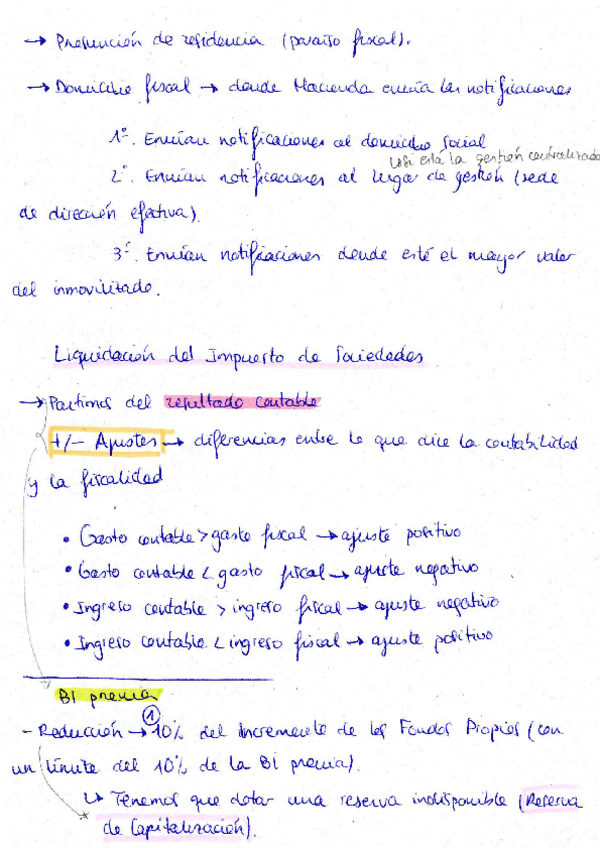 → Presunción de residencia (paraíso fiscal).
→ Domicilio fiscal → donde Hacienda envía las notificaciones
1º. Envían notificaciones al domicilio social
↳ si está la gestión centralizada
2º. Envían notificaciones al lugar de gestión (sede
de dirección efectiva).
3º. Envían notificaciones donde esté el mayor valor
del inmovilizado.
Liquidación del Impuesto de Sociedades
→ Partimos del resultado contable
+/- Ajustes → diferencias entre lo que dice la contabilidad
y la fiscalidad
• Gasto contable > gasto fiscal → ajuste positivo
• Gasto contable < gasto fiscal → ajuste negativo
• Ingreso contable > ingreso fiscal → ajuste negativo
• Ingreso contable < ingreso fiscal → ajuste positivo
BI previa
- Reducción → ① 10% del incremento de los Fondos Propios (con
un límite del 10% de la BI previa).
↳ Tenemos que dotar una reserva indisponible (Reserva
de Capitalización).